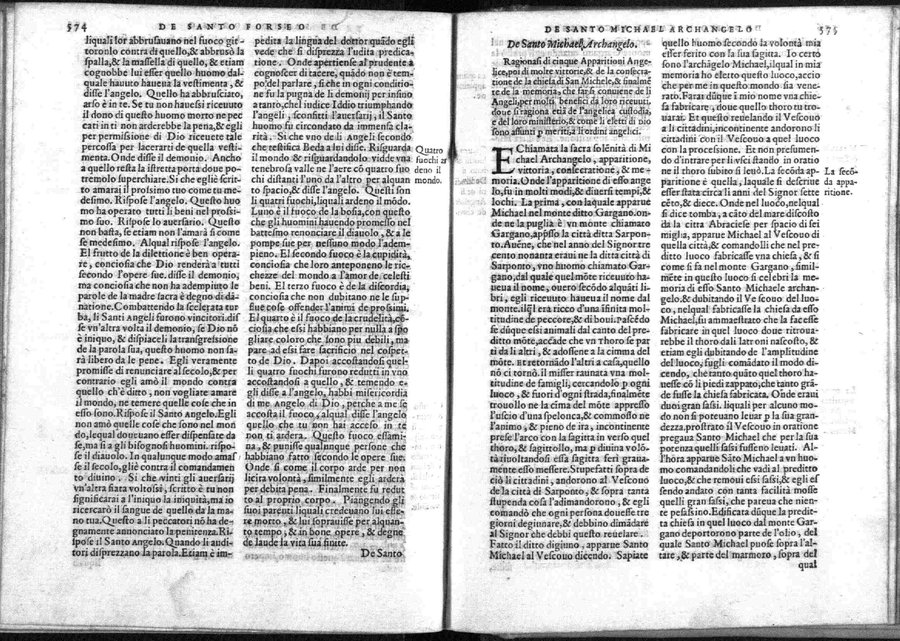 574 DE SANTO FORSEO
liquali lor abbrusauano nel fuoco git-
toronlo contra di quello,& abbrusò la
spalla,& la massella di quello, & etiam
cognobbe lui esser quello huomo dal-
quale hauuto haueua la vestimenta, &
disse l'angelo. Quello ha abbrusciato,
arso è in te. Se tu non hauessi riceuuto
il dono di questo huomo morto ne pec
cati in ti non arderebbe la pena,& egli
per permission di Dio riceuete tale
percossa per lacerarti de quella vesti-
menta. Onde disse il demonio. Ancho
a quello resta la istretta porta doue po-
tremolo superchiare. Si che egliè scrit-
to amarai il prossimo tuo come tu me-
desimo. Rispose l'angelo. Questo huo
mo ha operato tutti li beni nel prossi-
mo suo. Rispose lo auersario. Questo
non basta, se etiam non l'amarà si come
se medesimo. Alqual rispose l'angelo.
El frutto de la dilettione è ben opera-
re, conciosia che Dio renderà a tutti
secondo l'opere sue. disse il demonio,
ma conciosia che non ha adempiuto le
parole de la madre sacra è degno di dã-
natione. Combattendo la scelerata tur
ba, li Santi Angeli furono vincitori. dis
se vn'altra volta il demonio, se Dio nõ
è iniquo, & dispiaceli la transgressione
de la parola sua, questo huomo non sa-
rà libero da le pene. Egli veramente
promisse di renunciare al secolo,& per
contrario egli amò il mondo contra
quello ch'è ditto, non vogliate amare
il mondo, ne temere quelle cose che in
esso sono. Rispose il Santo Angelo. Egli
non amò quelle cose che sono nel mon
do, lequal doueuano esser dispensate da
lo, ma si a gli bisognosi huomini. rispo-
se il diauolo. In qualunque modo amas
se il secolo, gliè contra il comandamen
to diuino. Si che vinti gli auersarij
vn'altra fiata voltossi, scritto è tu non
significarai a l'iniquo la iniquità, ma io
ricercarò il sangue de quello da la ma-
no tua. Questo a li peccatori nõ ha de-
gnamente annonciato la penitenza. Ri-
spose il Santo Angelo. Quando li audi
tori disprezzano la parola. Etiam è im-
pedita la lingua del dottor quãdo egli
vede che si disprezza l'udita predica-
tione. Onde apertiense al prudente a
cognoscer di tacere, quãdo non è tem-
po del parlare, si che in ogni conditio-
ne fu la pugna de li demonij per insino
a tanto, chel iudice Iddio triumphando
l'angeli, sconfitti l'auersarij, il Santo
huomo fu circondato da immensa cla-
rità. Si che vno de li Angeli secondo
che testifica Beda a lui disse. Risguarda
il mondo & risguardandolo vidde vna
tenebrosa valle ne l'aere cõ quatro fuo
chi distanti l'uno da l'altro per alquan
to spacio,& disse l'angelo. Questi son
li quatri fuochi, liquali ardeno il mõdo.
L'uno è il fuoco de la bosia, con questo
che gli huomini hauendo promesso nel
battesmo renuncare il diauolo, & a le
pompe sue per nessuno modo l'adem-
pieno. El secondo fuoco è la cupidità,
conciosia che loro antepongeno le ric-
chezze del mondo a l'amor de celesti
beni. El terzo fuoco è de la discordia,
conciosia che non dubitano ne le su-
flue cose offender l'animi de prossimi.
El quarto è il fuoco de la crudeltà, cõ-
ciosia che essi habbiano per nulla a spo
gliare coloro che sono piu debili, ma
pare ad essi fare sacrificio nel cospet-
to de Dio. Dapoi accostandosi quel-
li quatro fuochi furono redutti in vno
accostandosi a quello, & temendo e-
gli disse a l'angelo, habbi misericordia
di me Angelo di Dio, perche a me se
accosta il fuoco, alqual disse l'angelo
quello che tu non hai acceso in te
non ti arderà. Questo fuoco essami-
na, & punisse qualunque persone che
habbiano fatto secondo le opere sue.
Onde si come il corpo arde per non
licita volontà, similmente egli arderà
per debita pena. Finalmente fu redut
to al proprio corpo. Piangendo gli
suoi parenti liquali credeuano lui esse-
re morto, & lui soprauisse per alquan-
to tempo, & in bone opere, & degne
de laude la vita sua finite.
De Santo
Quatro
fuochi ar
deno il
mondo.
DE SANTO MICHAEL ARCHANGELO 575
De Santo Michael, Archangelo.
Ragionasi di cinque Apparitioni Ange-
lice, poi di molte vittorie,& de la consecra-
tione de la chiesa di San Michele,& finalmẽ
te de la memoria, che far si conuiene de li
Angeli, per molti benefici da loro riceuuti,
doue si ragiona etiã de l'angelica custodia,
e del loro ministerio,& come li eletti di nio
sono assunti p meriti, a li ordini angelici.
EChiamata la sacra solẽnità di Mi
chael Archangelo, apparitione,
vittoria, consecratione, & me-
moria. Onde l'apparitione di esso ange
lo, fu in molti modi,& diuersi tempi,&
lochi. La prima, con laquale apparue
Michael nel monte ditto Gargano. on-
de ne la puglia è vn mõte chiamato
Gargano, appsso la città ditta Sarpon-
to. Auẽne, che nel anno del Signor tre
cento nonanta eraui ne la ditta città di
Sarponto, vno huomo chiamato Gar-
gano, dal quale quel mõte riceuuto ha-
ueua il nome, ouero secõdo alquãti li-
bri, egli riceuuto haueua il nome dal
monte. ilql era ricco d'una ifinita mol-
titudine de peccore,& di boui. Pascẽdo
se dũque essi animali dal canto del pre-
ditto mõte, accade che vn thoro se par
tì da li altri, & adossene a la cimma del
mõte. Et retornãdo l'altri a casa, quello
nõ ci tornò. il misser raunata vna mol-
titudine de famigli, cercandolo p ogni
luoco, & fuori d'ogni strada, finalmẽte
trouollo ne la cima del mõte appresso
l'uscio d'una spelonca,& commosso ne
l'animo, & pieno de ira, incontinente
prese l'arco con la sagitta in verso quel
thoro, & sagittollo, ma p diuina volõ-
tà riuoltandosi essa sagitta ferì graua-
mente esso messere. Stupefatti sopra de
ciò li cittadini, andorono al Vescouo
de la città di Sarponto, & sopra tanta
stupenda cosa l'adimandorono, & egli
comandò che ogni persona douesse tre
giorni degiunare,& debbino dimãdare
al Signor che debbi questo reuelare.
Fatto il ditto digiuno, apparue Santo
Michael al Vescouo dicendo. Sapiate
quello huomo secondo la volontà mia
esser ferito con la sua sagitta. Io certo
sono l'archãgelo Michael, ilqual in mia
memoria ho eletto questo luoco, accio
che per me in questo mondo sia vene-
rato. Faras dũque ĩ mio nome vna chie
sa fabricare, doue quello thoro tu tro-
uarai. Et questo reuelando il Vescouo
a li cittadini, incontinente andorono li
cittadini con il Vescouo a quel luoco
con la processione. Et non presumen-
do d'intrare per li vsci stando in oratio
ne il thoro subito si leuò. La secõda ap-
paritione è quella, laquale si descriue
esser stata circa li anni del Signor sette
cẽto,& diece. Onde nel luoco, nelqual
si dice tomba, a cãto del mare discosto
da la città Abraciese per spacio di sei
miglia, apparue Michael al Vescouo di
quella città,& comandolli che nel pre-
ditto luoco fabricasse vna chiesa, & si
come si fa nel monte Gargano, simil-
mẽte in questo luoco si celebri la me-
moria di esso Santo Michaele archan-
gelo,& dubitando il Vescouo del luo-
co, nelqual fabricasse la chiesa da esso
Michael, fu ammaestrato che la facesse
fabricare in quel luoco doue ritroua-
rebbe il thoro dali latroni nascosto, &
etiam egli dubitando de l'amplitudine
del luoco, fugli comãdato il modo di-
cendo, che tanto quãto quel thoro ha-
uesse cõ li piedi zappato, che tanto grã-
de fusse la chiesa fabricata. Onde eraui
duoi gran sassi. liquali per alcuno mo-
do non si poteuano leuar p la sua gran-
dezza. prostrato il Vescouo in oratione
pregaua Santo Michael che per la sua
potenza quelli sassi fussero leuati. Al-
lhora apparue Sãto Michael a vn huo-
mo comandandoli che vadi al preditto
luoco,& che remoui essi sassi,& egli es
sendo andato con tanta facilità mosse
quelli gran sassi, che pareua che nien-
te pesassino. Edificata dũque la preditta
ta chiesa in quel luoco dal monte Gar
gano deportorono parte de l'olio, del
quale Santo Michael puose sopra l'al-
tare, & parte del marmoro, sopra del
qual
La secõ-
da appa-
ritione.